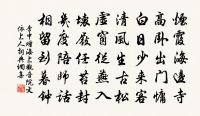 煙霞海邊寺
高臥出門慵
白日少來客
清風生古松
虛窗從燕入
壞屐任苔封
幾度陪師話
相留到暮鐘
李中贈海上觀音院文
依上人詩